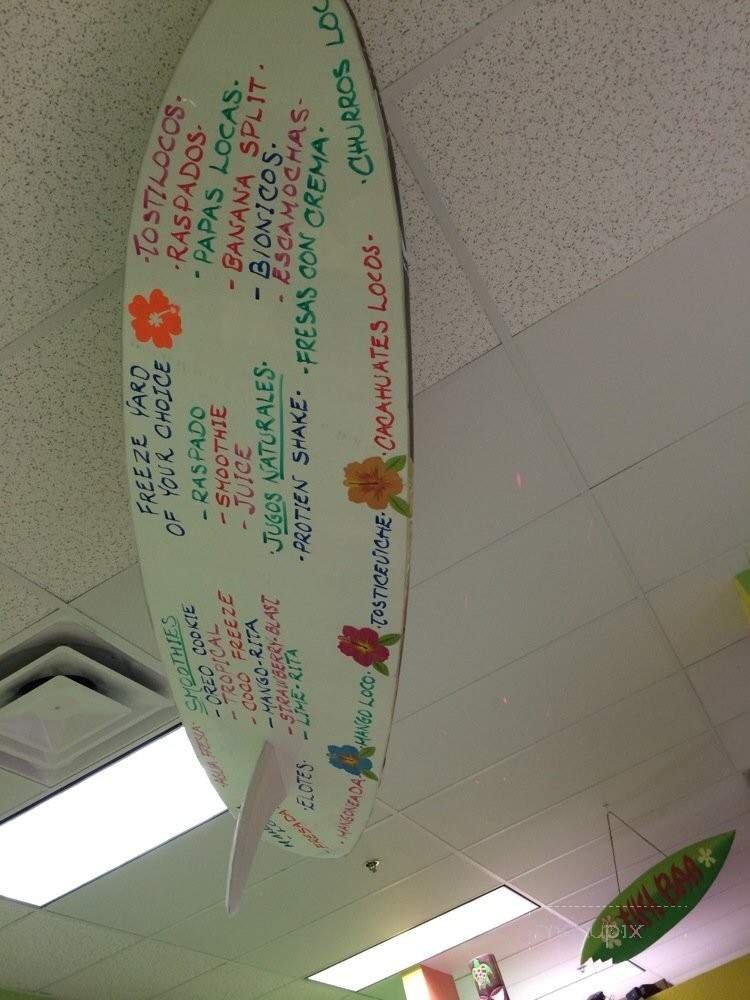 ·TOSTILOCOS·
·RASPADOS·
- PAPAS LOCAS·
- BANANA SPLIT·
- BIONICOS·
- ESCAMOCHAS-
·FRESAS CON CREMA·
·CHURROS
FREEZE YARD
OF YOUR CHOICE
- RASPADO
- SMOOTHIE
- JUICE
·JUGOS NATURALES·
·PROTIEN SHAKE·
·CACAHUATES LOCOS·
SMOOTHIES
- OREO COOKIE
- TROPICAL
- COCO FREEZE
- MANGO-RITA
- STRAWBERRY-BLAST
- LIME-RITA
·TOSTICEVICHE·
FRESA·
·ELOTES·
·MANGO LOCO·
·MANGONEADA·
FRESA
TIKI BAR